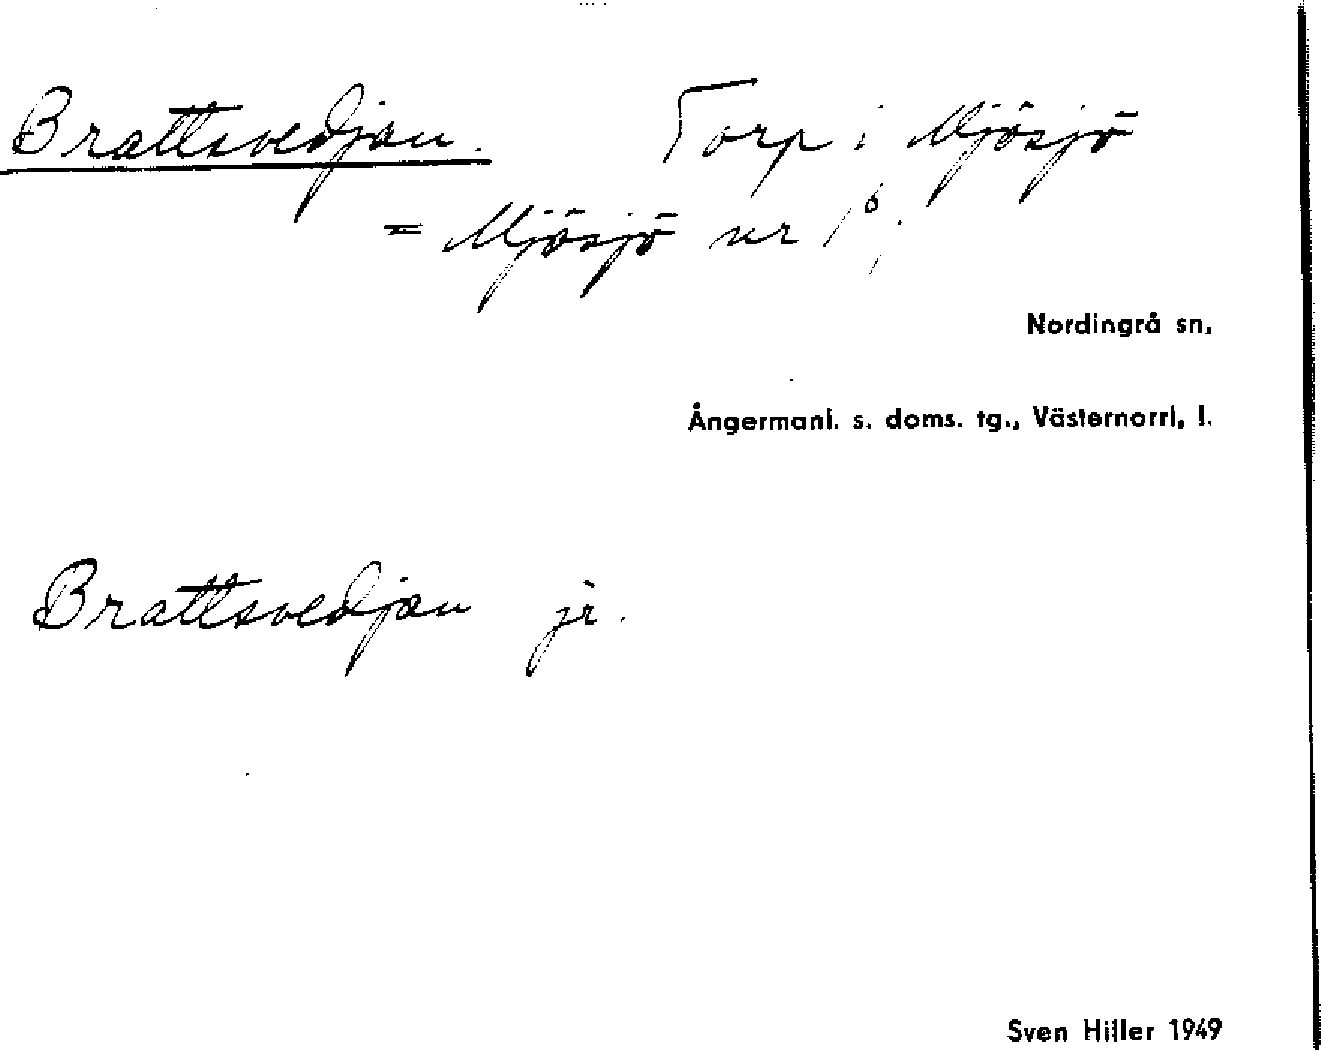 Brattsvedjan. Torp i Mjösjö
= Mjösjö nr 1⁶.
Nordingrå sn,
Ångermanl. s. doms. tg., Västernorrl, l.
Brattsvedjan jr.
Sven Hiller 1949